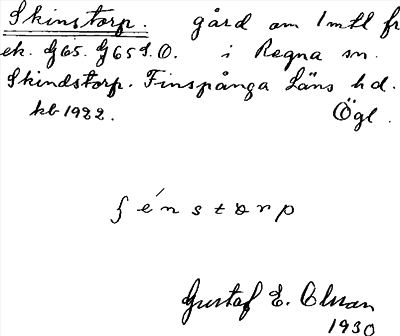 Skinstorp. gård om 1 mtl fr
ek. G65. G65 S.O. i Regna sn.
Skindstorp. Finspånga Läns hd.
kb 1922. Ögl.
ʃénstɵrp
Gustaf E. Olsson
1930